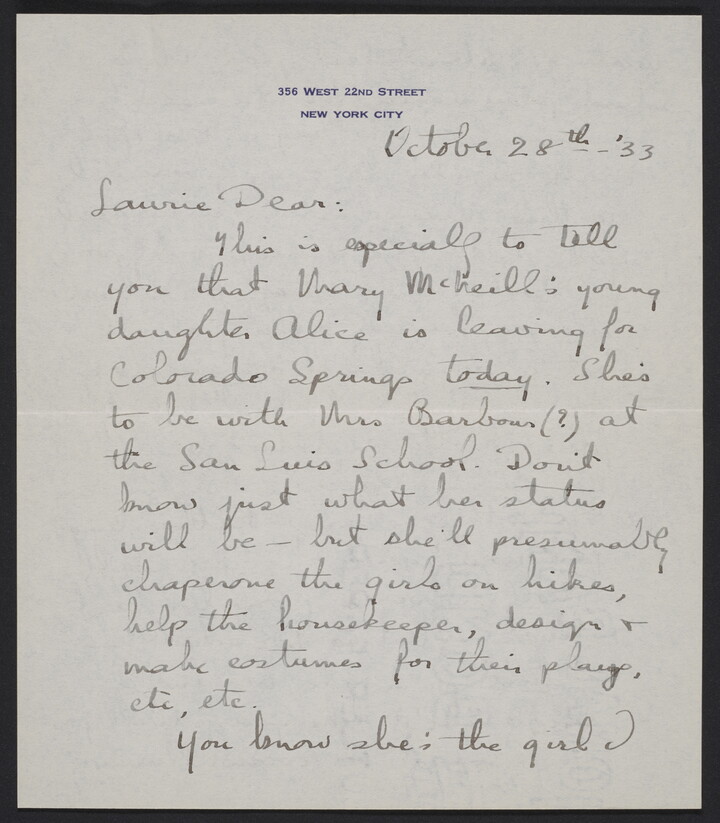 356 WEST 22ND STREET
NEW YORK CITY
October 28th - '33
Laurie Dear:
This is especially to tell
you that Mary McNeill's young
daughter Alice is leaving for
Colorado Springs today. She's
to be with Mrs Barbour (?) at
the San Luis School. Don't
know just what her status
will be — but she'll presumably
chaperone the girls on hikes,
help the housekeeper, design +
make costumes for their plays,
etc, etc.
You know she's the girl I